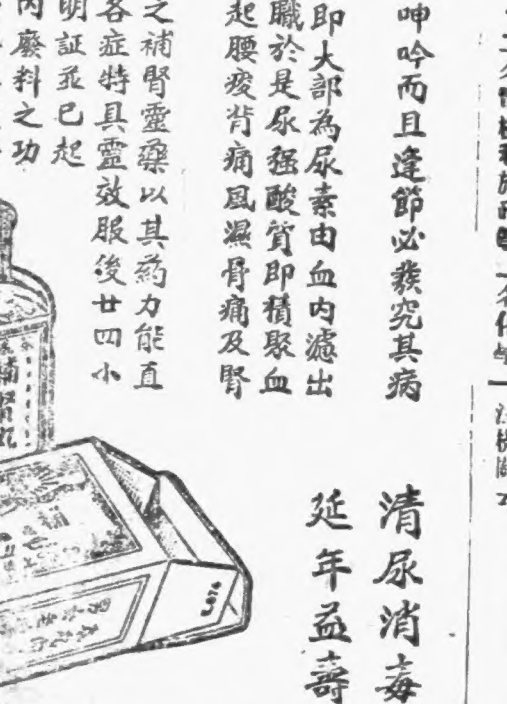 呻吟而且逢節必發究其病
即大部為尿素由血内濾出
職於是尿强酸質即積聚血
起腰痠背痛風濕骨痛及腎
之補腎靈藥以其药力能直
各症特具靈效服後廿四小
明証並已起
内廢料之功
清尿消毒
延年益壽
補腎丸